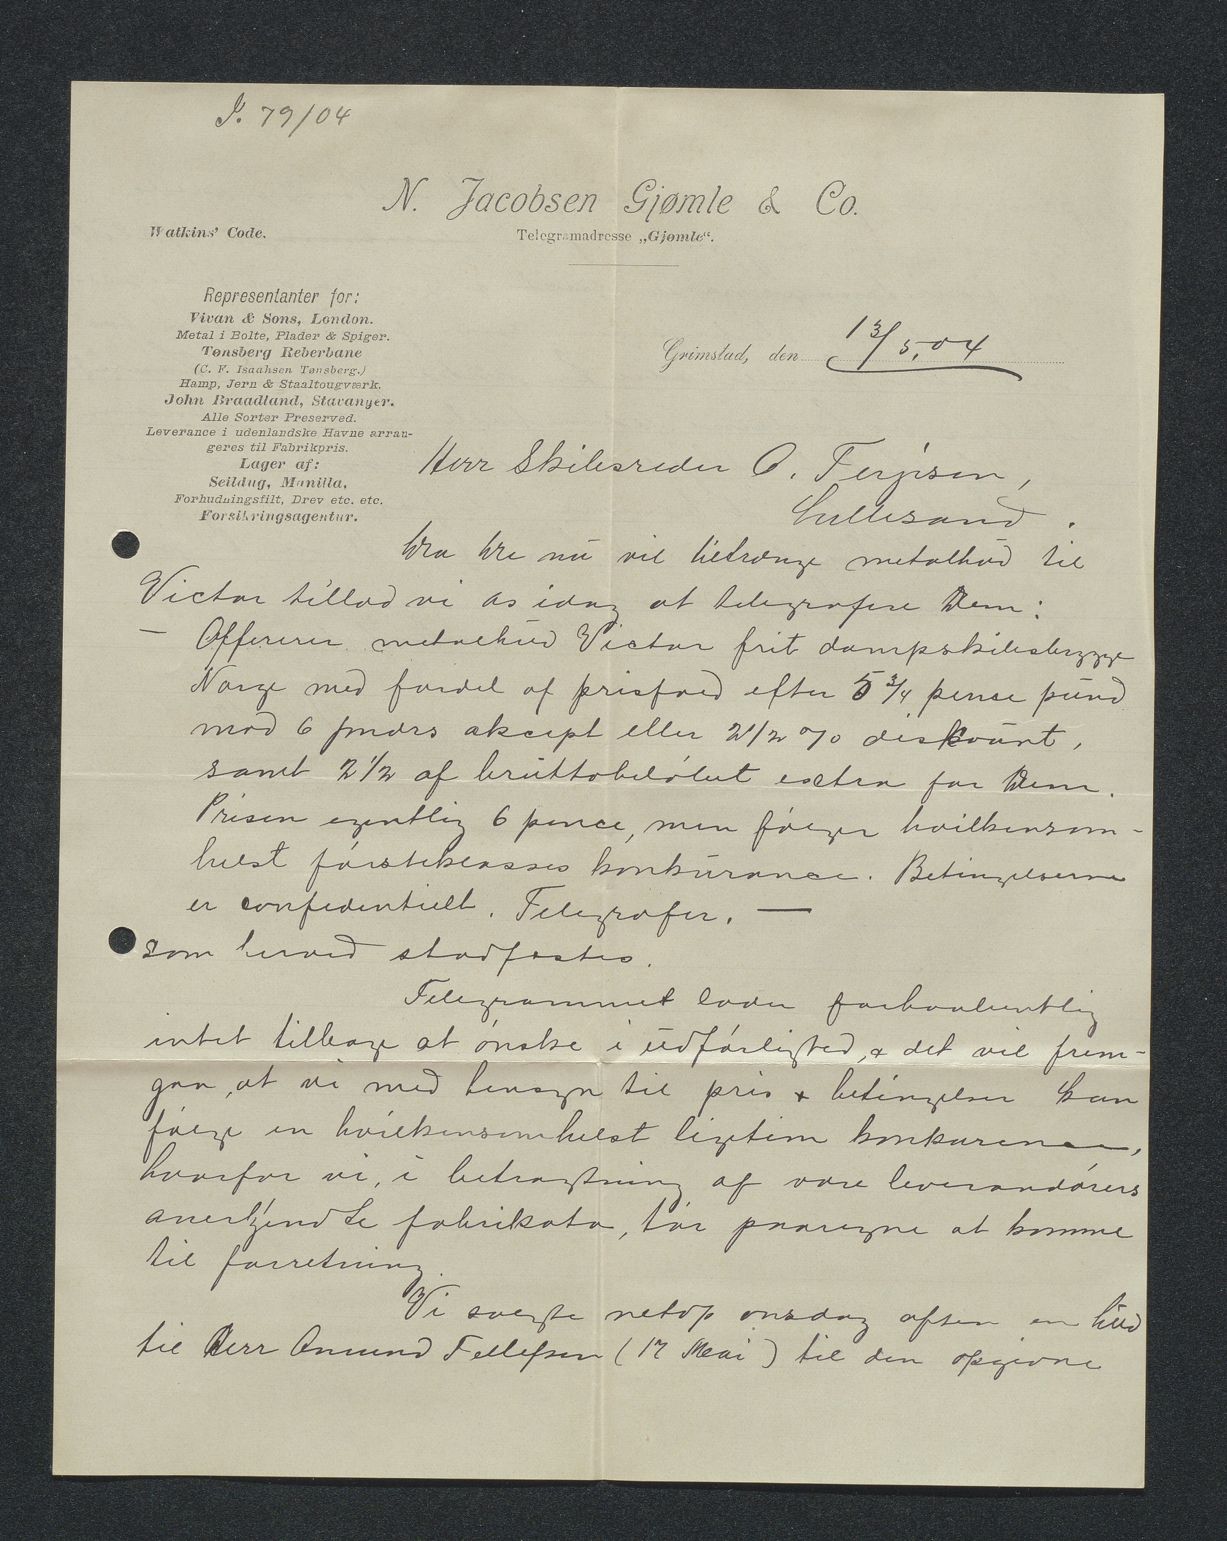 J. 79/04
N. Jacobsen Gjømle & Co.
Watkins' Code.
Telegramadresse „Gjømle“.
Representanter for:
Vivan & Sons, London.
Metal i Bolte, Plader & Spiger.
Tønsberg Reberbane
(C. F. Isaahsen Tønsberg.)
Hamp, Jern & Staaltougværk.
John Braadland, Stavanger.
Alle Sorter Preserved.
Leverance i udenlandske Havne arran-
geres til Fabrikpris.
Lager af:
Seildug, Manilla,
Forhudningsfilt, Drev etc. etc.
Forsikringsagentur.
Grimstad, den 13/5.04
Herr Skibsreder O. Terjesen,
Lillesand.
Da De nu vil tiltrænge metalhud til
Victor tillod vi os idag at telegrafere Dem:
— Offererer metalhud Victor frit dampskibsbrygge
Norge med fordel af prisfald efter 5 3/4 pence pund
mod 6 mdrs aksept eller 2 1/2 % diskount,
samt 2 1/2 af bruttobeløbet extra for Dem.
Prisen egentlig 6 pence, men følger hvilkensom-
helst førsteklasses konkurance. Betingelserne
er confidentielt. Telegrafer. —
som herved stadfæstes.
Telegrammet lader forhaabentlig
intet tilbage at ønske i udførlighed, & det vil frem-
gaa, at vi med hensyn til pris & betingelser kan
følge en hvilkensomhelst ligetim konkurence,
hvorfor vi, i betragtning af vore leverandørers
anerkjendte fabrikata, tør paaregne at komme
til forretning.
Vi solgte netop onsdag aften en hud
til Herr Anund Tellefsen (17 Mai) til den opgivne